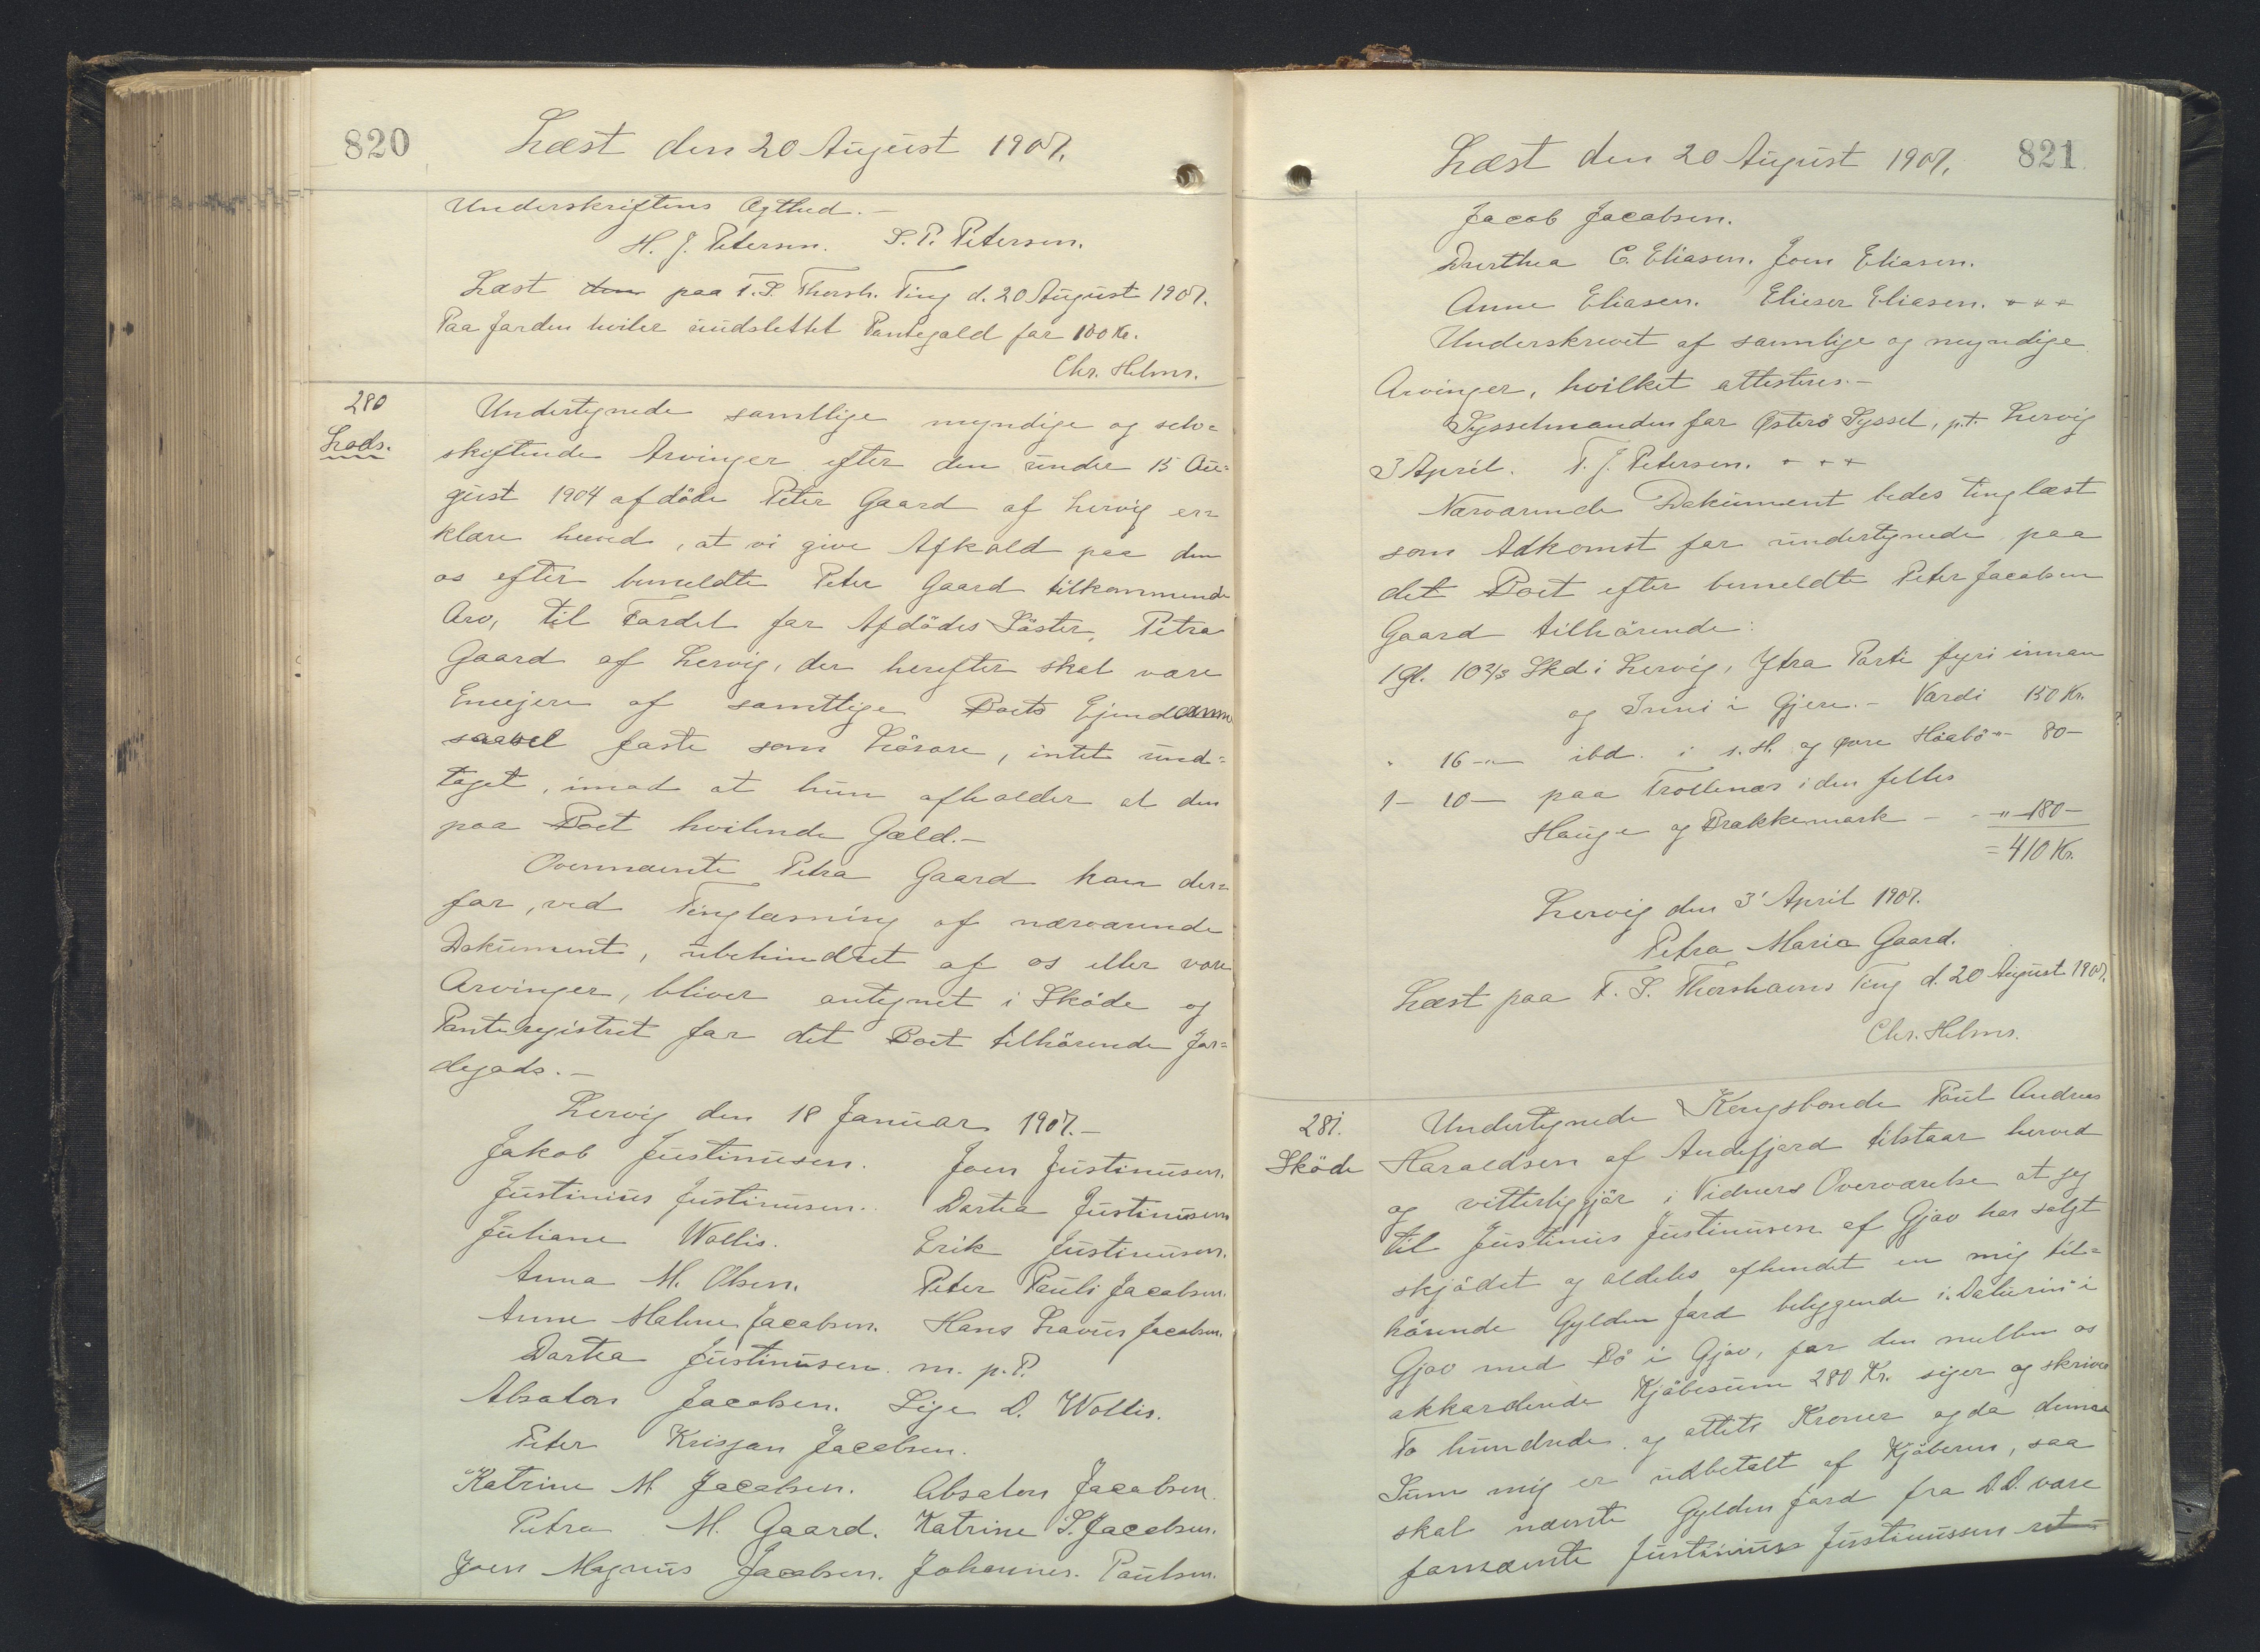 820
Læst den 20 August 1907.
Underskriftens Ægthed.-
H. J. Petersen. S. P. Petersen.
Læst den paa T. S. Thorsh. Ting d. 20 August 1907.
Paa Jorden hviler uudslettet Pantegæld for 100 Kr.
Chr. Helms.
280
Lods.
Undertegnede samtlige myndige og selv=
skiftende Arvinger efter den under 15 Au=
gust 1904 afdöde Peter Gaard af Lervig er=
klære herved, at vi give Afkald paa den
os efter bemeldte Peter Gaard tilkommende
Arv, til Fordel for Afdödes Söster, Petra
Gaard af Lervig, der herefter skal være
Eneejere af samtlige Boets Ejendomme
saavel faste som Lösöre, intet und=
taget, imod at hun afholder al den
paa Boet hvilende Gæld.-
Ovennævnte Petra Gaard kan der=
for, ved Tinglæsning af nærværende
Dokument, ubehindret af os eller vore
Arvinger, bliver antegnet i Sköde og
Panteregistret for det Boet tilhörende Jor=
degods.-
Lervig den 18 Januar 1907.-
Jakob Justinusen. Joen Justinusen.
Justinus Justinusen. Dortea Justinusen
Juliane Wollis. Erik Justinusen.
Anna M. Olsen. Peter Pauli Jacobsen.
Anne Malene Jacobsen. Hans Lavus Jacobsen.
Dortea Justinusen. m. p. P.
Absalon Jacobsen. Sige D. Wollis.
Peter Krisjan Jacobsen.
Katrine M Jacobsen. Absalon Jacobsen.
Petra M. Gaard. Katrine S. Jacobsen.
Joen Magnus Jacobsen. Johannes Paulsen.
Læst den 20 August 1907.
821
Jacob Jacobsen.
Dorthea C. Eliasen. Joen Eliasen.
Anne Eliasen. Elieser Eliasen. + + +
Underskrevet af samlige og myndige
Arvinger, hvilket attesteres.-
Sysselmanden for Österö Syssel, p.t. Lervig
3 April. T. J. Petersen. + + +
Nærværende Dokument bedes tinglæst
som Adkomst for undertegnede paa
det Boet efter bemeldte Peter Jacobsen
Gaard tilhörende:
1 Gl. 10 2/3 Skd i Lervig, Ytra Parti fyri innan
og Inni i Gjere.- Værdi 150 Kr.
" 16 -"- ibd. i s. H. og Övre Höabö -"- 80-
1- 10- paa Trollenæs i den fælles
Hauge og Brakkemark - -"- 180-
= 410 Kr.
Lervig den 3' April 1907.
Petra Maria Gaard.
Læst paa T. S. Thorshavns Ting d. 20 August 1907.
Chr. Helms.
281.
Sköde
Undertegnede Kongsbonde Poul Andreas
Haraldsen af Andefjord tilstaar herved
og vitterliggjör i Vidners Overværelse at jeg
til Justinus Justinusen af Gjov har solgt
skjödet og aldeles afhændet en mig til=
hörende Gylden Jord beliggende i "Dalurin" i
Gjov med Bö i Gjov, for den mellem os
akkorderede Kjöbesum 280 Kr. siger og skriver
To hundrede og otteti Kroner og da denne
Sum mig er udbetalt af Kjöberen, saa
skal nævnte Gylden Jord fra D.D. være
fornævnte Justinius Justinussen ret=